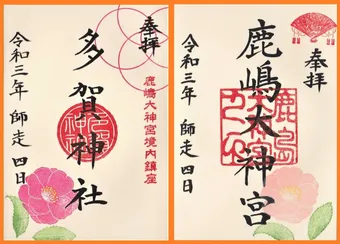 奉拝
鹿嶋大神宮境内鎮座
多賀神社
令和三年 師走 四日
奉拝
鹿嶋大神宮
令和三年 師走 四日